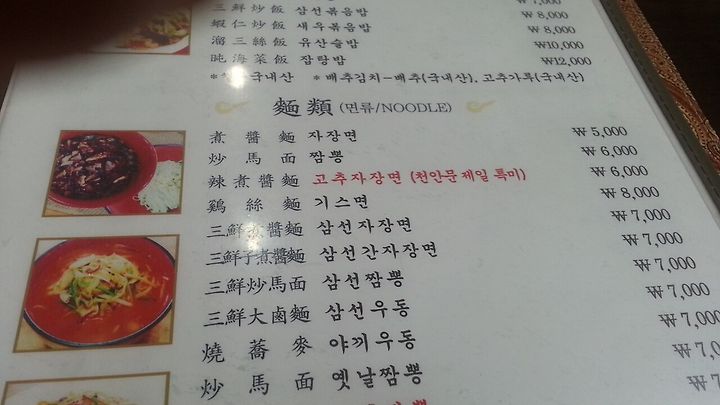 三鮮炒飯 삼선볶음밥 ₩7,000
蝦仁炒飯 새우볶음밥 ₩8,000
溜三絲飯 유산슬밥 ₩8,000
잡탕밥 ₩10,000
₩12,000
국내산 * 배추김치-배추(국내산), 고추가루(국내산)
麵類 (면류/NOODLE)
煮醬麵 자장면 ₩5,000
炒馬面 짬뽕 ₩6,000
辣煮醬麵 고추자장면 (천안문 제일 특미) ₩6,000
鷄絲麵 기스면 ₩8,000
三鮮煮醬麵 삼선자장면 ₩7,000
三鮮子煮醬麵 삼선간자장면 ₩7,000
三鮮炒馬面 삼선짬뽕 ₩7,000
三鮮大鹵麵 삼선우동 ₩7,000
燒蕎麥 야끼우동
炒馬面 옛날짬뽕